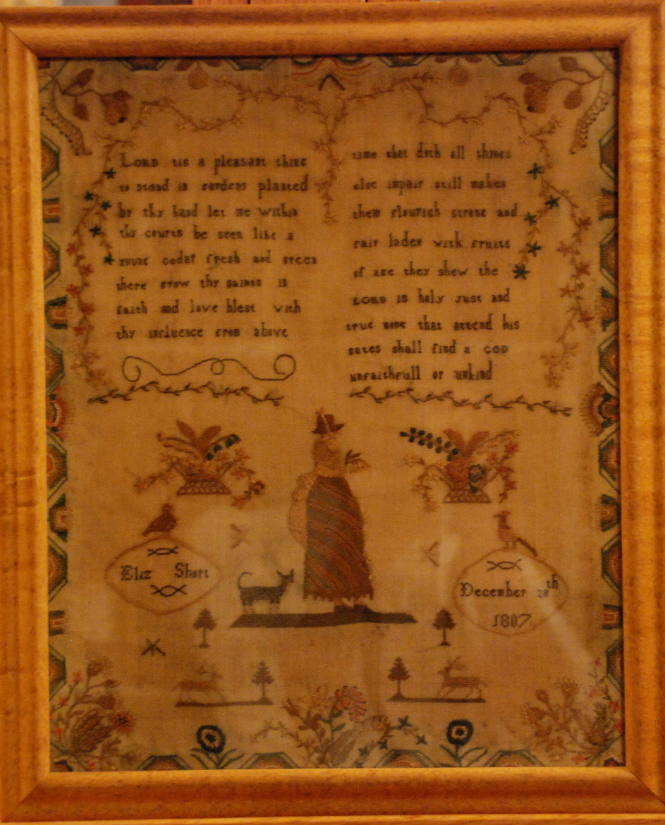 LORD tis a pleasant thing
to stand in gardens planted
by thy hand let me within
thy courts be seen like a
young cedar fresh and green
there grow thy saints in
faith and love blest with
thy influence from above
time that doth all things
else impair still makes
them flourish strong and
fair laden with fruits
of age they shew the
LORD is holy just and
true none that attend his
gates shall find a GOD
unfaithfull or unkind
Eliz Short
December th
1807